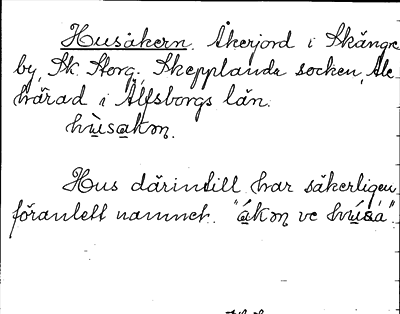 Husåkern. Åkerjord i Skånge
by, Sk. Storg. Skepplanda socken, Ale
härad i Älfsborgs län.
hùsakɷn.
Hus därintill har säkerligen
föranlett namnet. "ákɷn ve húsá".